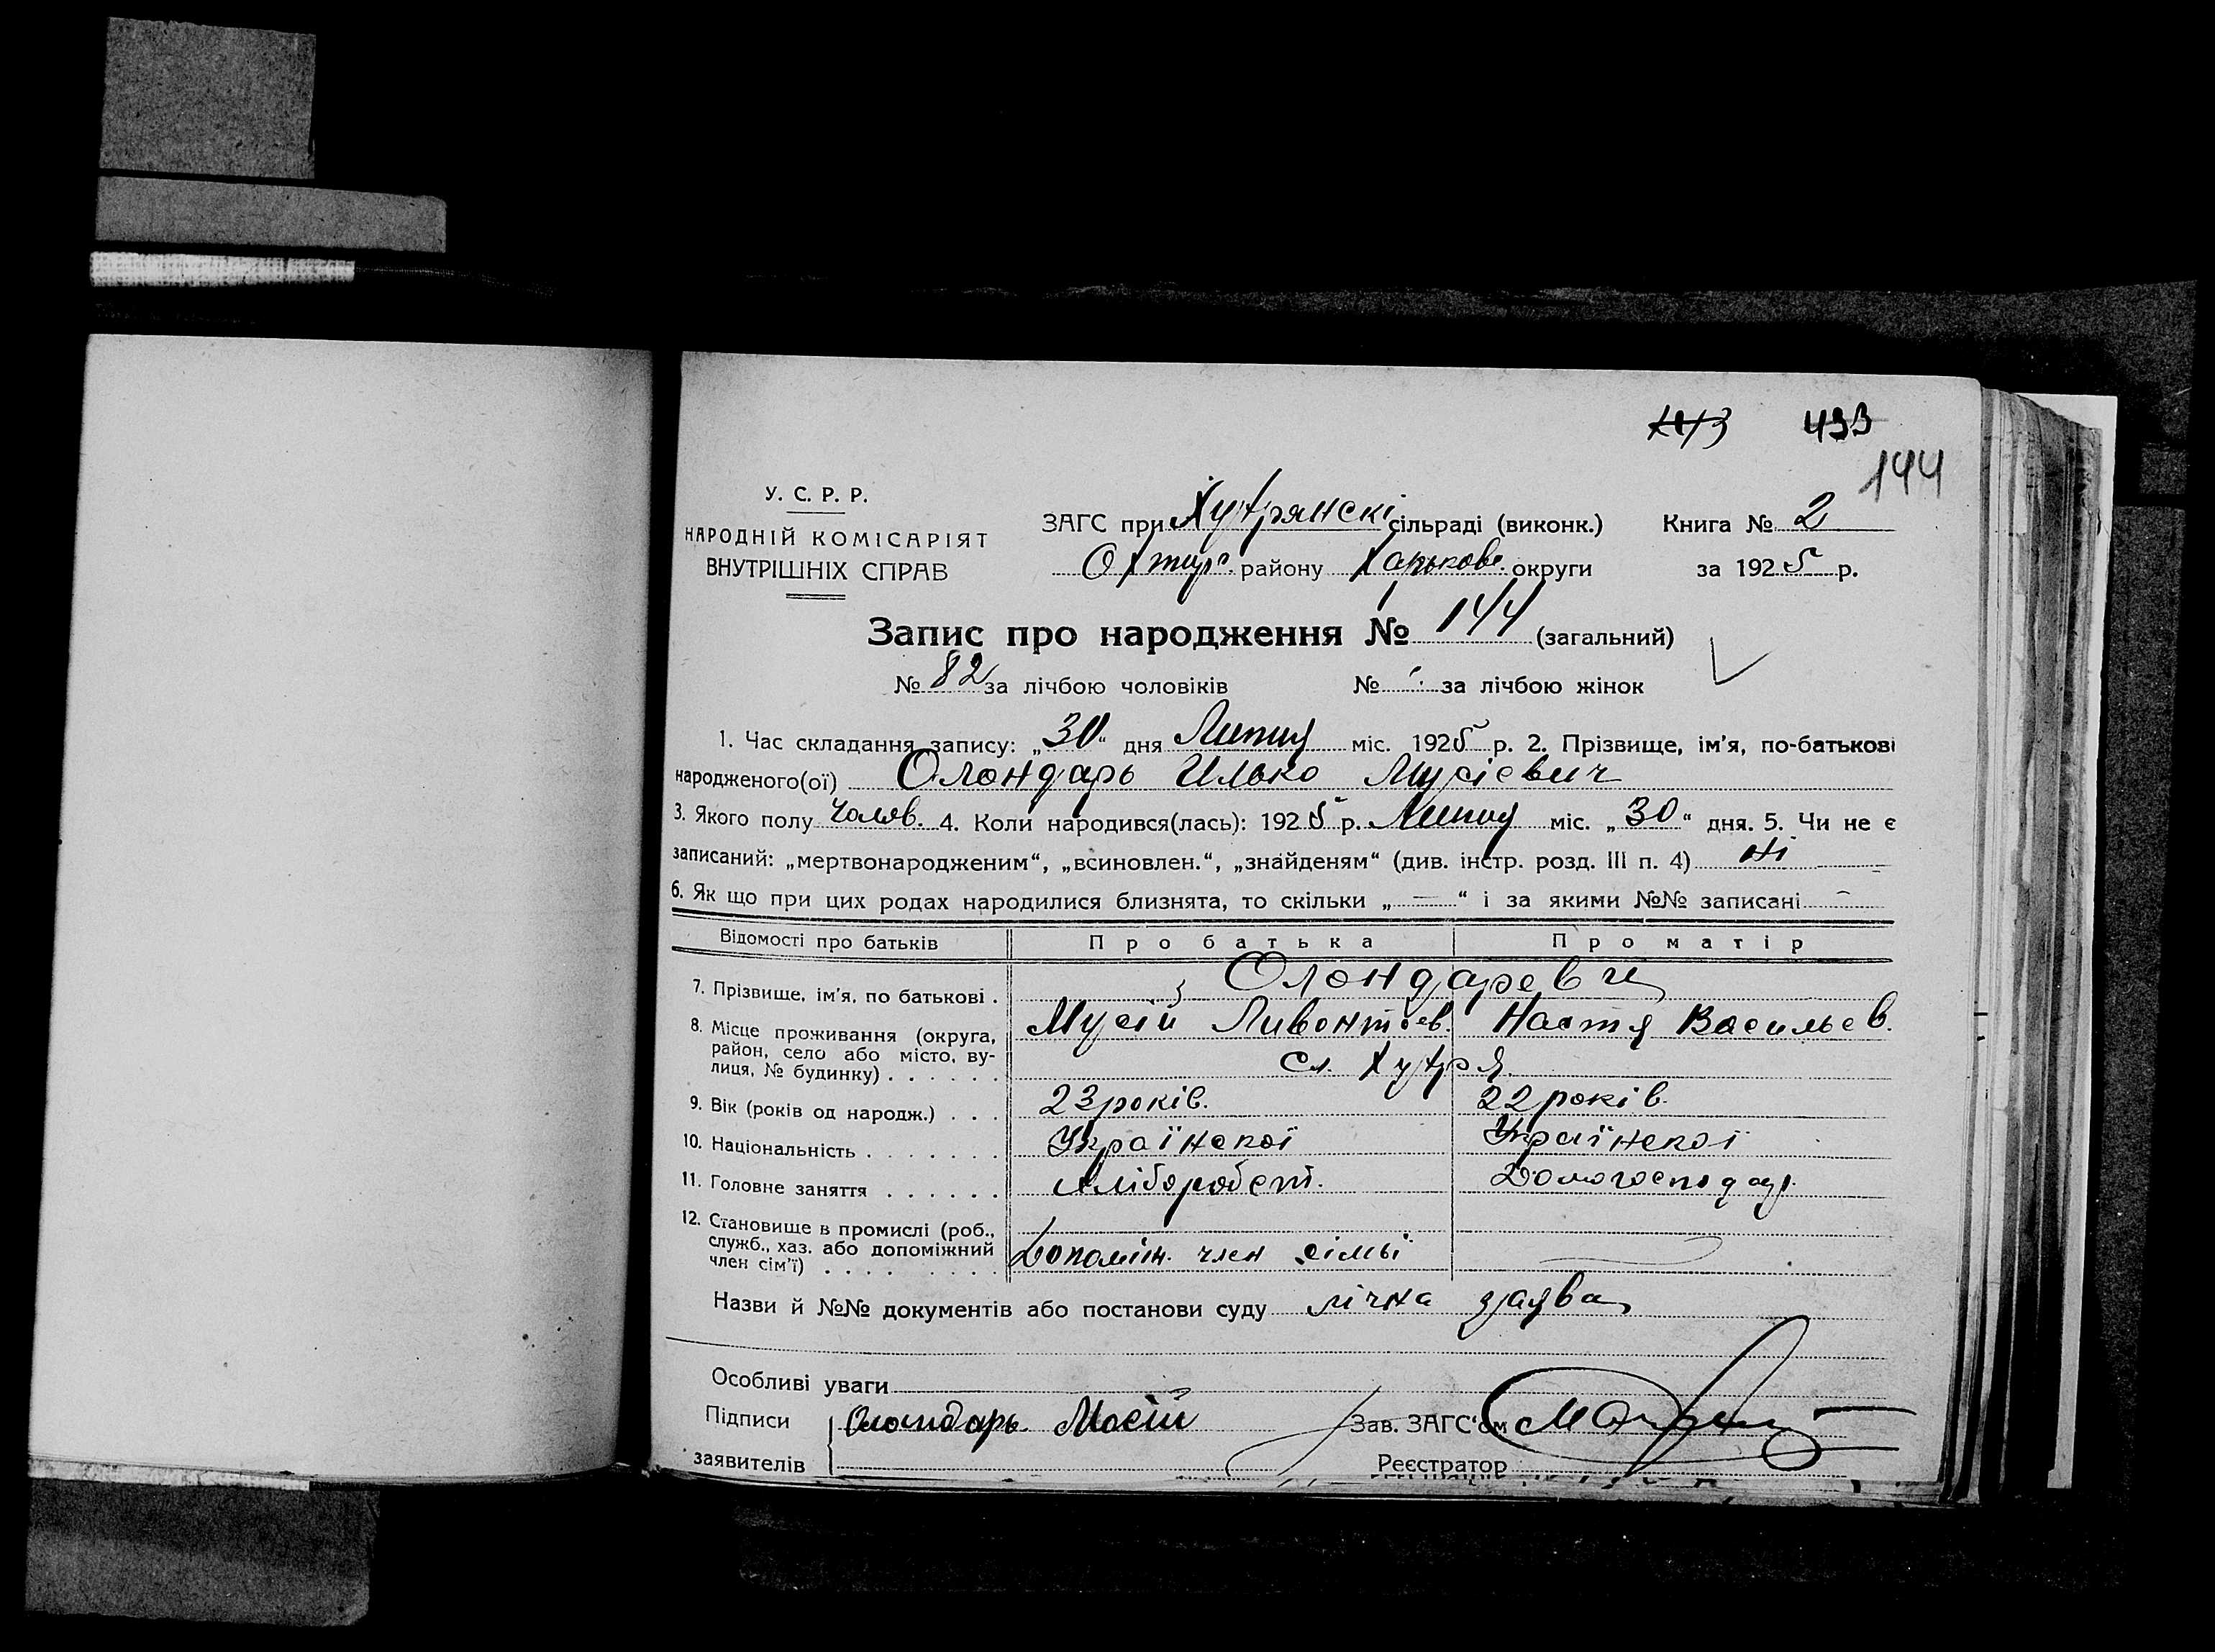 433
144
У. С. Р. Р.
НАРОДНІЙ КОМІСАРІЯТ
ВНУТРІШНІХ СПРАВ
ЗАГС при Хухрянскі сільраді (виконк.) Книга № 2
Охтир. району Харькове. округи за 1925 р.
Запис про народження № 144 (загальний)
№ 82 за лічбою чоловіків № за лічбою жінок
1. Час складання запису: „30“ дня Липня міс. 1925 р. 2. Прізвище, ім'я, по-батькові
народженого(ої) Олондарь Илько Мусієвич
3. Якого полу Чолов. 4. Коли народився(лась): 1925 р. Липня міс. „30“ дня. 5. Чи не є
записаний: „мертвонародженим“, „всиновлен.“, „знайденям“ (див. інстр. розд. III п. 4) ні
6. Як що при цих родах народилися близнята, то скільки „—“ і за якими №№ записані —
Відомості про батьків Про батька Про матір
7. Прізвище, ім'я, по батькові . Олондареви
8. Місце проживання (округа, район, село або місто, вулиця, № будинку) . . . . . . Мусій Ливонтієв. Настя Васильєв.
сл. Хухря
9. Вік (років од народж.) . . . 23 років. 22 років.
10. Національність . . . . . . . Українскої Українскої
11. Головне заняття . . . . . . Хліборобст. Домогосподар.
12. Становище в промислі (роб.,
служб., хаз. або допоміжний
член сім'ї) . . . . . . . . . Допоміж. член сімьї —
Назви й №№ документів або постанови суду лічна заява
Особливі уваги
Підписи Олондарь Мосій Зав. ЗАГС'ом
заявителів Реєстратор